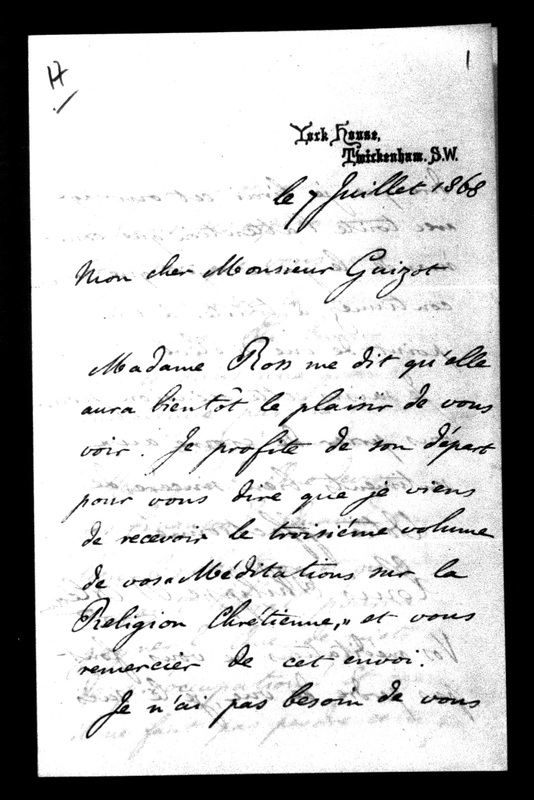 H
1
York House,
Twickenham. S.W.
le 7 Juillet 1868
Mon cher Monsieur Guizot
Madame Ross me dit qu'elle
aura bientôt le plaisir de vous
voir. Je profite de son départ
pour vous dire que je viens
de recevoir le troisième volume
de vos "Méditations sur la
Religion Chrétienne," et vous
remercier de cet envoi.
Je n'ai pas besoin de vous